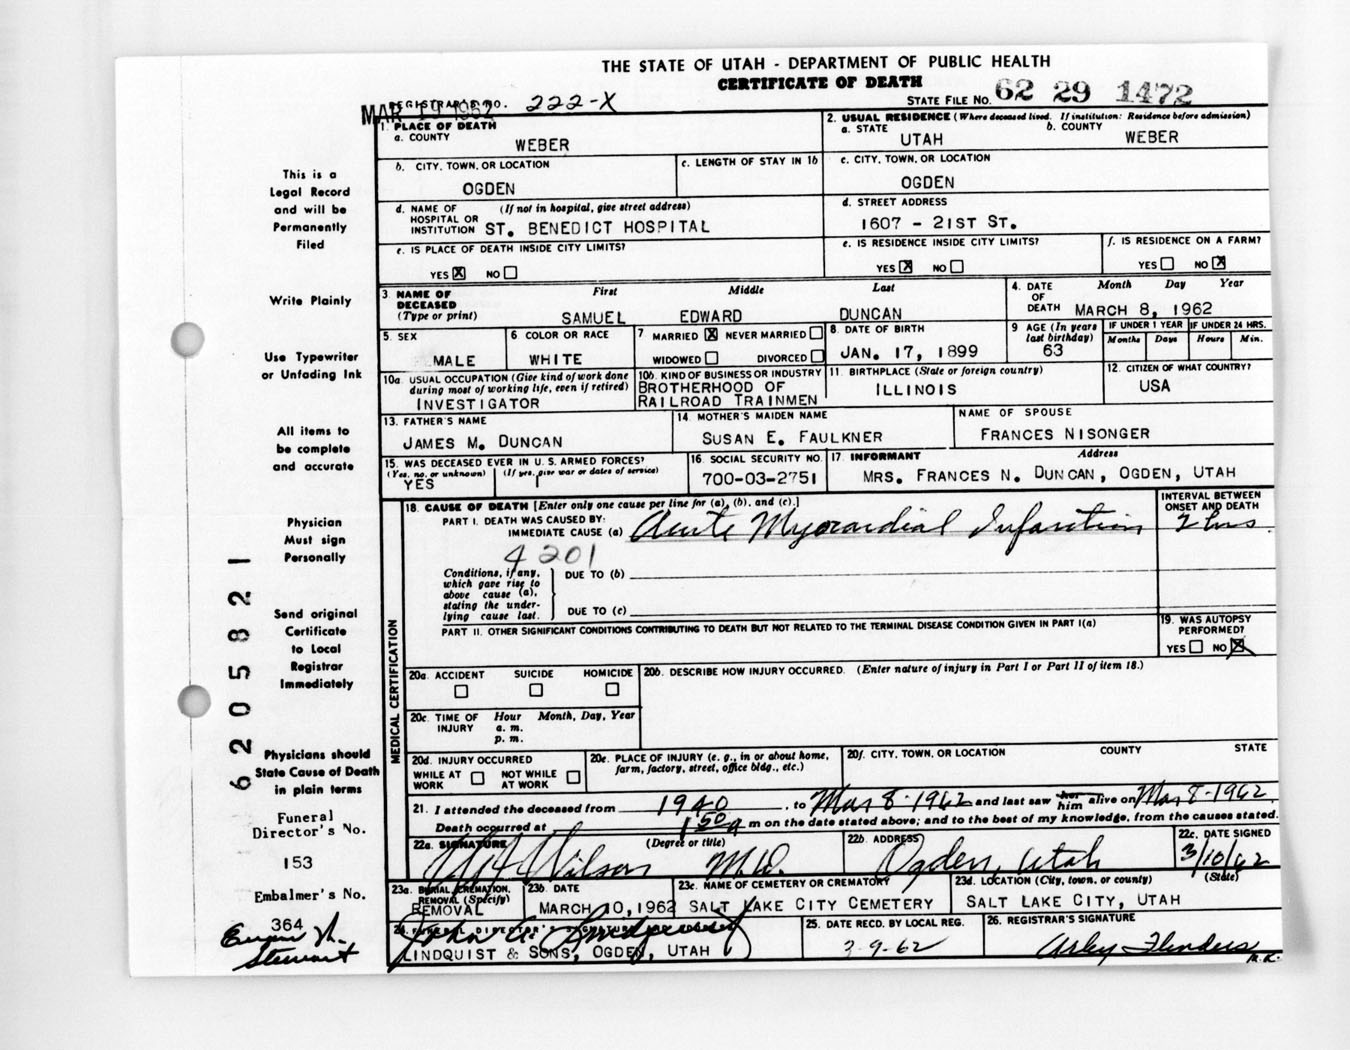 THE STATE OF UTAH - DEPARTMENT OF PUBLIC HEALTH
CERTIFICATE OF DEATH
REGISTRAR'S NO. 222-X
MAR 19 1962
STATE FILE NO. 62 29 1472
1. PLACE OF DEATH
a. COUNTY
WEBER
2. USUAL RESIDENCE (Where deceased lived. If institution: Residence before admission)
a. STATE
UTAH
b. COUNTY
WEBER
b. CITY, TOWN, OR LOCATION
OGDEN
c. LENGTH OF STAY IN 1b
c. CITY, TOWN, OR LOCATION
OGDEN
d. NAME OF HOSPITAL OR INSTITUTION
(If not in hospital, give street address)
ST. BENEDICT HOSPITAL
d. STREET ADDRESS
1607 - 21ST ST.
e. IS PLACE OF DEATH INSIDE CITY LIMITS?
YES X NO
e. IS RESIDENCE INSIDE CITY LIMITS?
YES X NO
f. IS RESIDENCE ON A FARM?
YES NO X
3 NAME OF DECEASED
(Type or print)
First Middle Last
SAMUEL EDWARD DUNCAN
4. DATE OF DEATH
Month Day Year
MARCH 8, 1962
5. SEX
MALE
6 COLOR OR RACE
WHITE
7 MARRIED X NEVER MARRIED
WIDOWED DIVORCED
8. DATE OF BIRTH
JAN. 17, 1899
9 AGE (In years last birthday)
63
IF UNDER 1 YEAR IF UNDER 24 HRS.
Months Days Hours Min.
10a. USUAL OCCUPATION (Give kind of work done during most of working life, even if retired)
INVESTIGATOR
10b. KIND OF BUSINESS OR INDUSTRY
BROTHERHOOD OF
RAILROAD TRAINMEN
11. BIRTHPLACE (State or foreign country)
ILLINOIS
12. CITIZEN OF WHAT COUNTRY?
USA
13. FATHER'S NAME
JAMES M. DUNCAN
14. MOTHER'S MAIDEN NAME
SUSAN E. FAULKNER
NAME OF SPOUSE
FRANCES NISONGER
15. WAS DECEASED EVER IN U. S. ARMED FORCES?
(Yes, no, or unknown) (If yes, give war or dates of service)
YES
16. SOCIAL SECURITY NO.
700-03-2751
17. INFORMANT Address
MRS. FRANCES N. DUNCAN, OGDEN, UTAH
18. CAUSE OF DEATH [Enter only one cause per line for (a), (b), and (c).]
INTERVAL BETWEEN ONSET AND DEATH
PART I. DEATH WAS CAUSED BY:
IMMEDIATE CAUSE (a) Acute Myocardial Infarction 2 hrs
4201
Conditions, if any, which gave rise to above cause (a), stating the underlying cause last.
DUE TO (b)
DUE TO (c)
PART II. OTHER SIGNIFICANT CONDITIONS CONTRIBUTING TO DEATH BUT NOT RELATED TO THE TERMINAL DISEASE CONDITION GIVEN IN PART I(a)
19. WAS AUTOPSY PERFORMED?
YES NO X
20a. ACCIDENT SUICIDE HOMICIDE
20b. DESCRIBE HOW INJURY OCCURRED. (Enter nature of injury in Part I or Part II of item 18.)
20c. TIME OF INJURY
Hour Month, Day, Year
a. m.
p. m.
20d. INJURY OCCURRED
WHILE AT WORK NOT WHILE AT WORK
20e. PLACE OF INJURY (e. g., in or about home, farm, factory, street, office bldg., etc.)
20f. CITY, TOWN, OR LOCATION COUNTY STATE
21. I attended the deceased from 1940, to Mar 8-1962 and last saw her him alive on Mar 8-1962.
Death occurred at 1 50 a m on the date stated above; and to the best of my knowledge, from the causes stated.
22a. SIGNATURE (Degree or title)
Wilson M.D.
22b. ADDRESS
Ogden, Utah
22c. DATE SIGNED
3/10/62
23a. BURIAL, CREMATION, REMOVAL (Specify)
REMOVAL
23b. DATE
MARCH 10, 1962
23c. NAME OF CEMETERY OR CREMATORY
SALT LAKE CITY CEMETERY
23d. LOCATION (City, town, or county) (State)
SALT LAKE CITY, UTAH
24. FUNERAL DIRECTOR'S SIGNATURE
John A. Lindquist
LINDQUIST & SONS, OGDEN, UTAH
25. DATE RECD. BY LOCAL REG.
3-9-62
26. REGISTRAR'S SIGNATURE
Arley Flinders
M.K.
MEDICAL CERTIFICATION
This is a
Legal Record
and will be
Permanently
Filed
Write Plainly
Use Typewriter
or Unfading Ink
All items to
be complete
and accurate
Physician
Must sign
Personally
Send original
Certificate
to Local
Registrar
Immediately
Physicians should
State Cause of Death
in plain terms
Funeral
Director's No.
153
Embalmer's No.
364
Stewart
6205821